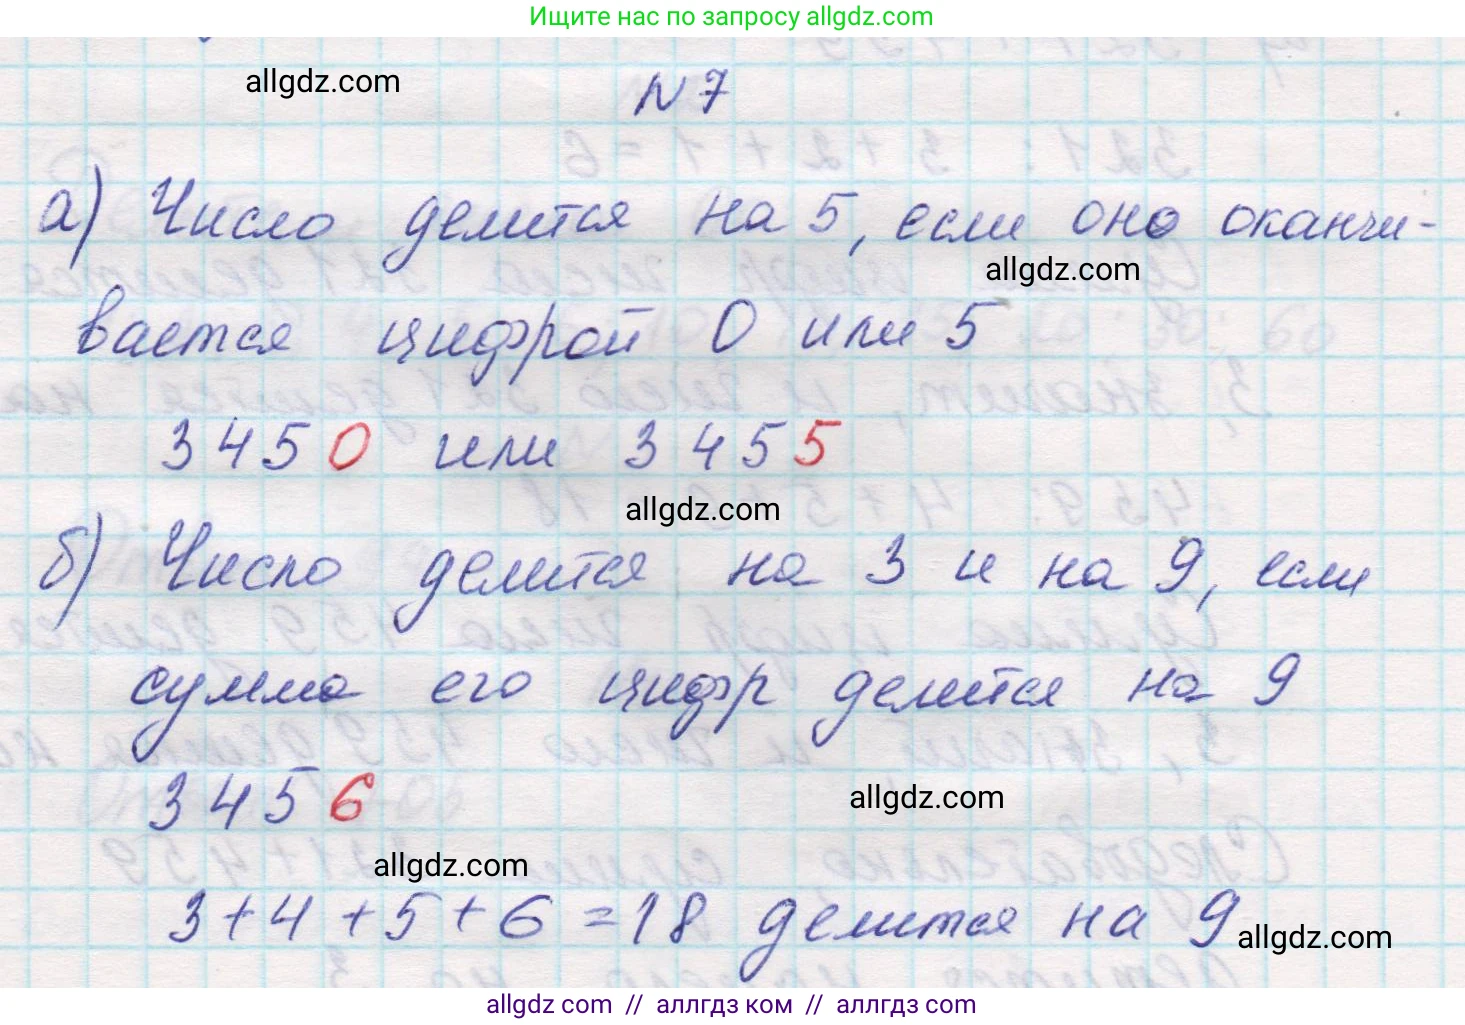 Ищите нас по запросу allgdz.com
allgdz.com
N 7
а) Число делится на 5, если оно оканчи-
allgdz.com
вается цифрой 0 или 5
3450 или 3455
allgdz.com
б) Число делится на 3 и на 9, если
сумма его цифр делится на 9
3456
allgdz.com
allgdz.com
3+4+5+6=18 делится на 9
allgdz.com
allgdz com // аллгдз ком // аллгдз com